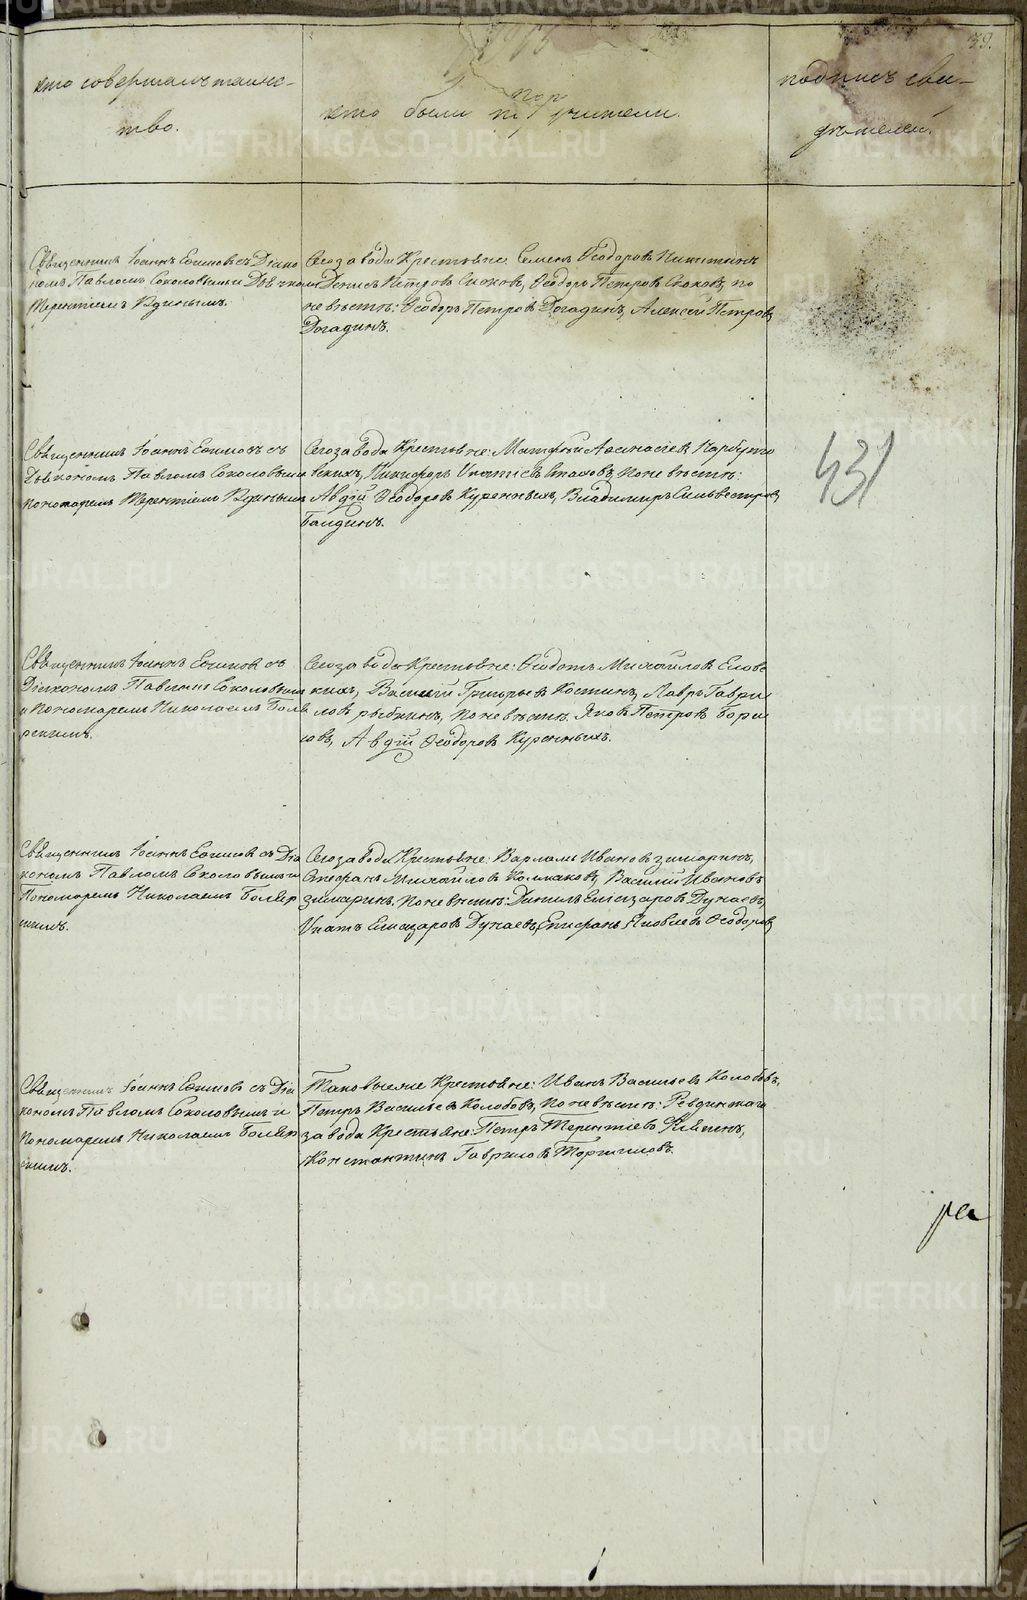 39.
кто совершалъ таинс-
тво.
кто были поручители.
подпись сви-
дѣтелей.
Священникъ Іоаннъ Евимовъ съ Діако
номъ Павломъ Соколовымъ и Дьячкомъ
Терентіемъ Вдинымъ.
Сего завода Крестьяне: Семенъ Ѳеодоровъ Никитинъ
Денисъ Петровъ Скоковъ, Ѳеодоръ Петровъ Скоковъ, по
невѣстѣ: Ѳеодоръ Петровъ Догадинъ, Алексѣй Петровъ
Догадинъ.
Священникъ Іоаннъ Евимовъ съ
Дьякономъ Павломъ Соколовымъ и
пономаремъ Терентіемъ Вдинымъ
Сего завода Крестьяне: Матфей Аѳанасіевъ Нарбуто
вскихъ, Никифоръ Ипатіевъ Стаховъ, по невѣстѣ:
Авдій Ѳеодоровъ Куренныхъ, Владимиръ Сильвестровъ
Балдинъ.
431
Священникъ Іоаннъ Евимовъ съ
Діакономъ Павломъ Соколовымъ
и Пономаремъ Николаемъ Бояр
скимъ.
Сего завода Крестьяне: Ѳеодотъ Михайловъ Еловс
кихъ, Василій Григорьевъ Костинъ, Лавръ Гаври
ловъ рыбкинъ, по невѣстѣ: Яковъ Петровъ Бори
совъ, Авдій Ѳеодоровъ Куренныхъ.
Священникъ Іоаннъ Евимовъ съ Діа
кономъ Павломъ Соколовымъ и
Пономаремъ Николаемъ Бояр
скимъ.
Сего завода Крестьяне: Варламъ Ивановъ зимаринъ,
Стефанъ Михайловъ Колмаковъ, Василій Ивановъ
зимаринъ. По невѣстѣ: Данилъ Елизаровъ Дунаевъ,
Ипатъ Елизаровъ Дунаевъ, Епифанъ Яковлевъ Ѳеодоровъ
Священникъ Іоаннъ Евимовъ съ Діа
кономъ Павломъ Соколовымъ и
Пономаремъ Николаемъ Бояр
скимъ.
Таковыеже Крестьяне: Иванъ Васильевъ Колобовъ,
Петръ Васильевъ Колобовъ, по невѣстѣ: Ревдинскаго
завода Крестьяне: Петръ Терентіевъ Кляпинъ,
Константинъ Гавриловъ Торгашовъ.
ра
METRIKI.GASO-URAL.RU